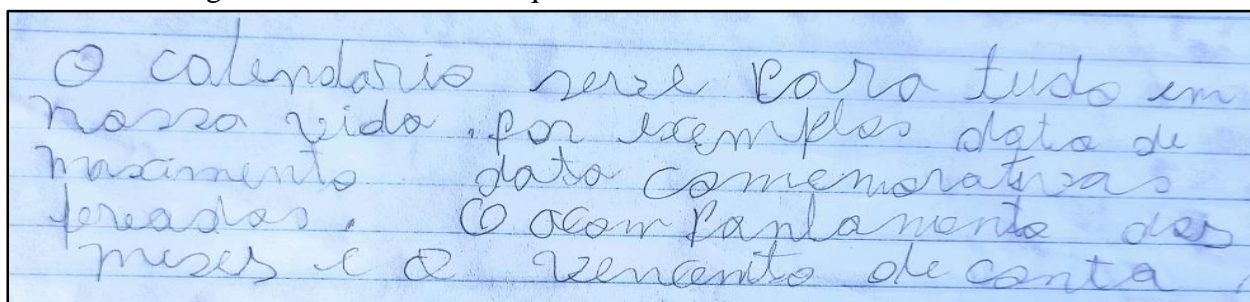 O calendario serve para tudo em
nossa vida. por exemplos data de
nascimento data comemorativas
fereados. O acompanlamento dos
meses e o vencemto de conta.